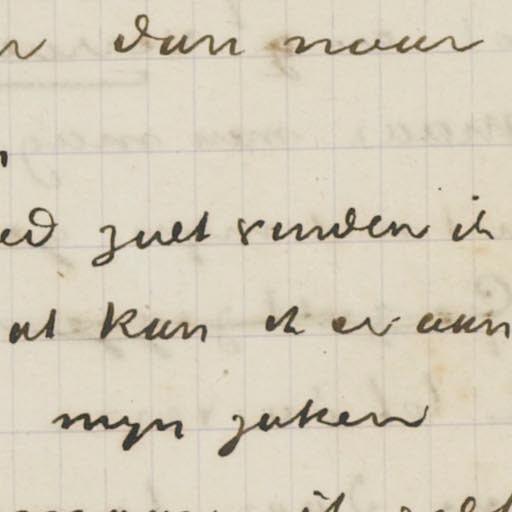 dan naar
zult vinden ik
at kan ik er aan
mijn zaken